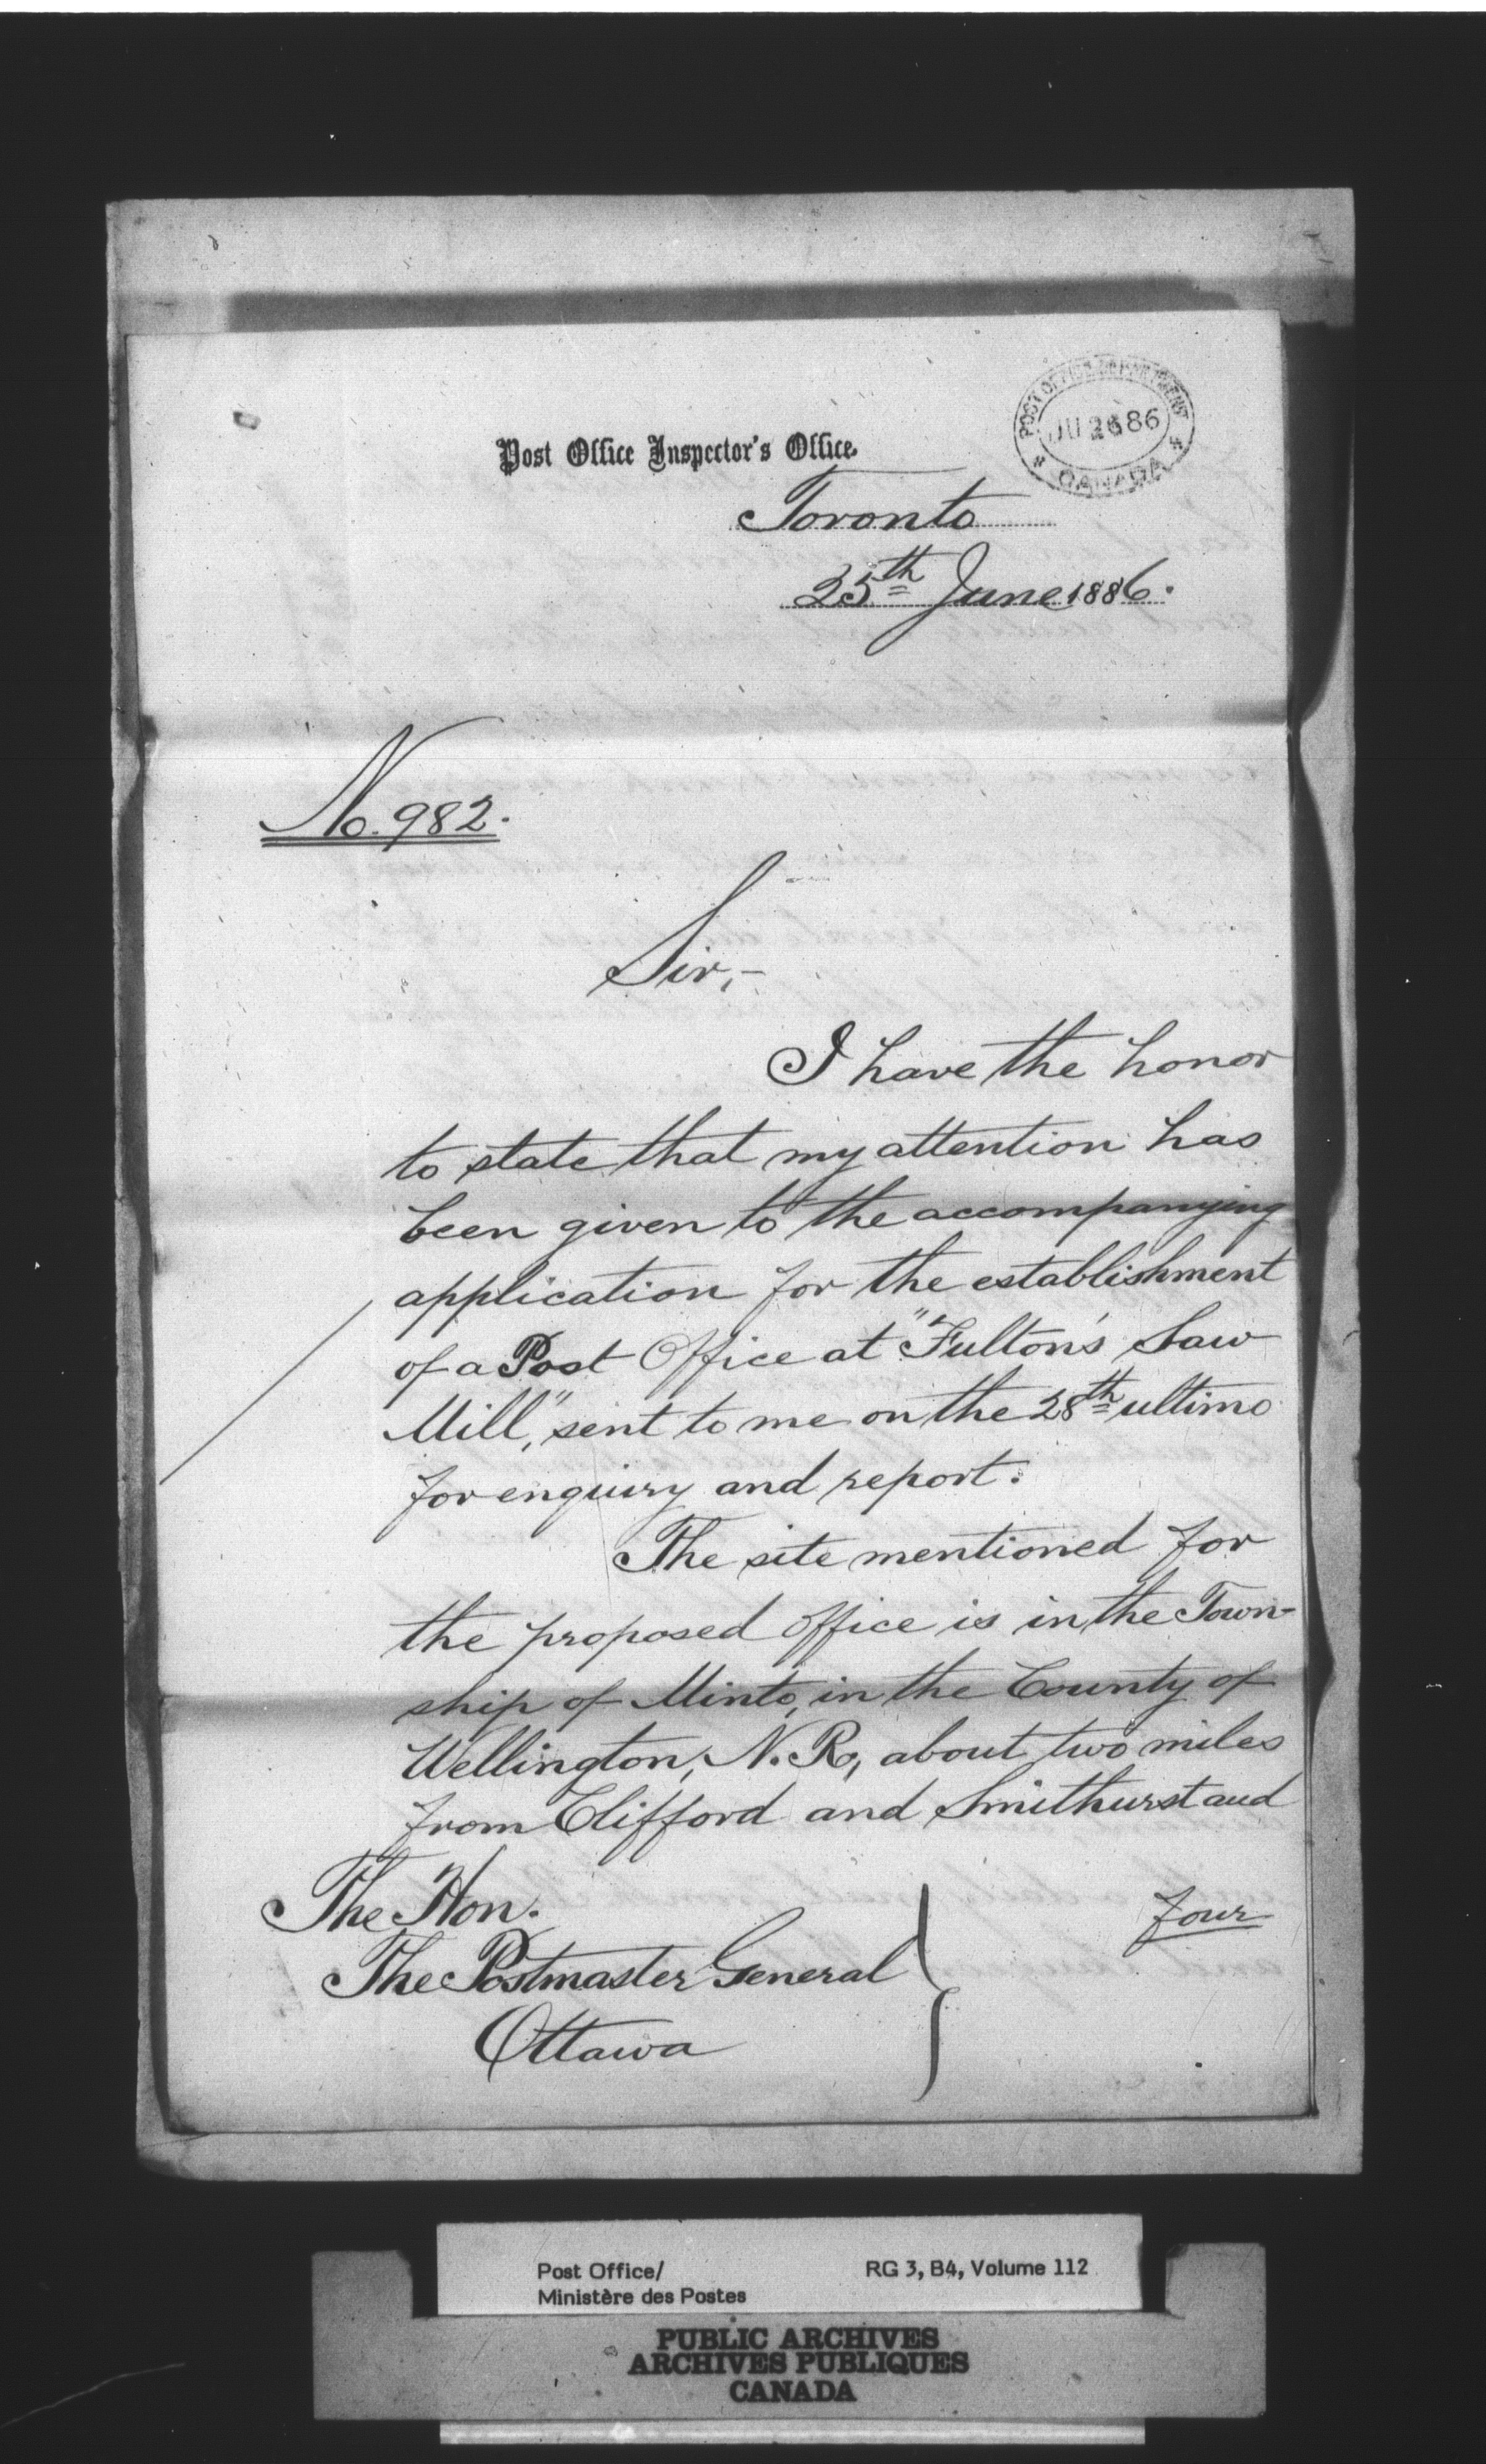 POST OFFICE DEPARTMENT
JU 26 86
CANADA
Post Office Inspector's Office.
Toronto
25th June 1886.
No. 982.
Sir,-
I have the honor
to state that my attention has
been given to the accompanying
application for the establishment
of a Post Office at "Fulton's Saw
Mill," sent to me on the 28th ultimo
for enquiry and report.
The site mentioned for
the proposed office is in the Town-
ship of Minto, in the County of
Wellington, N. R., about two miles
from Clifford and Smithurst and
four
The Hon.
The Postmaster General
Ottawa
Post Office/
Ministère des Postes
RG 3, B4, Volume 112
PUBLIC ARCHIVES
ARCHIVES PUBLIQUES
CANADA